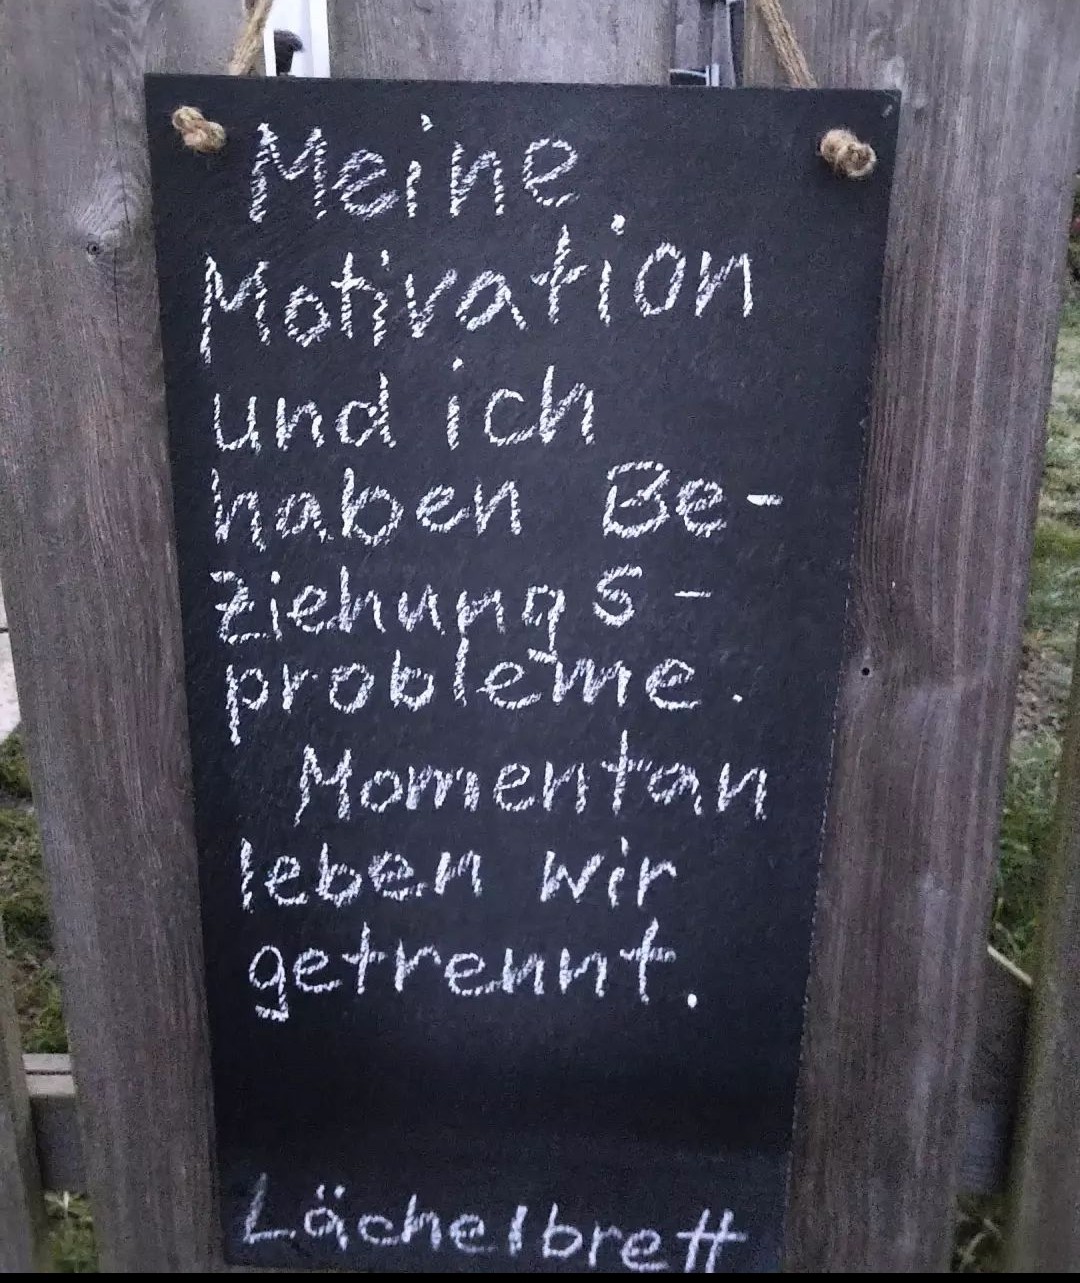 Meine
Motivation
und ich
haben Be-
ziehungs-
probleme.
Momentan
leben wir
getrennt.
Lächelbrett